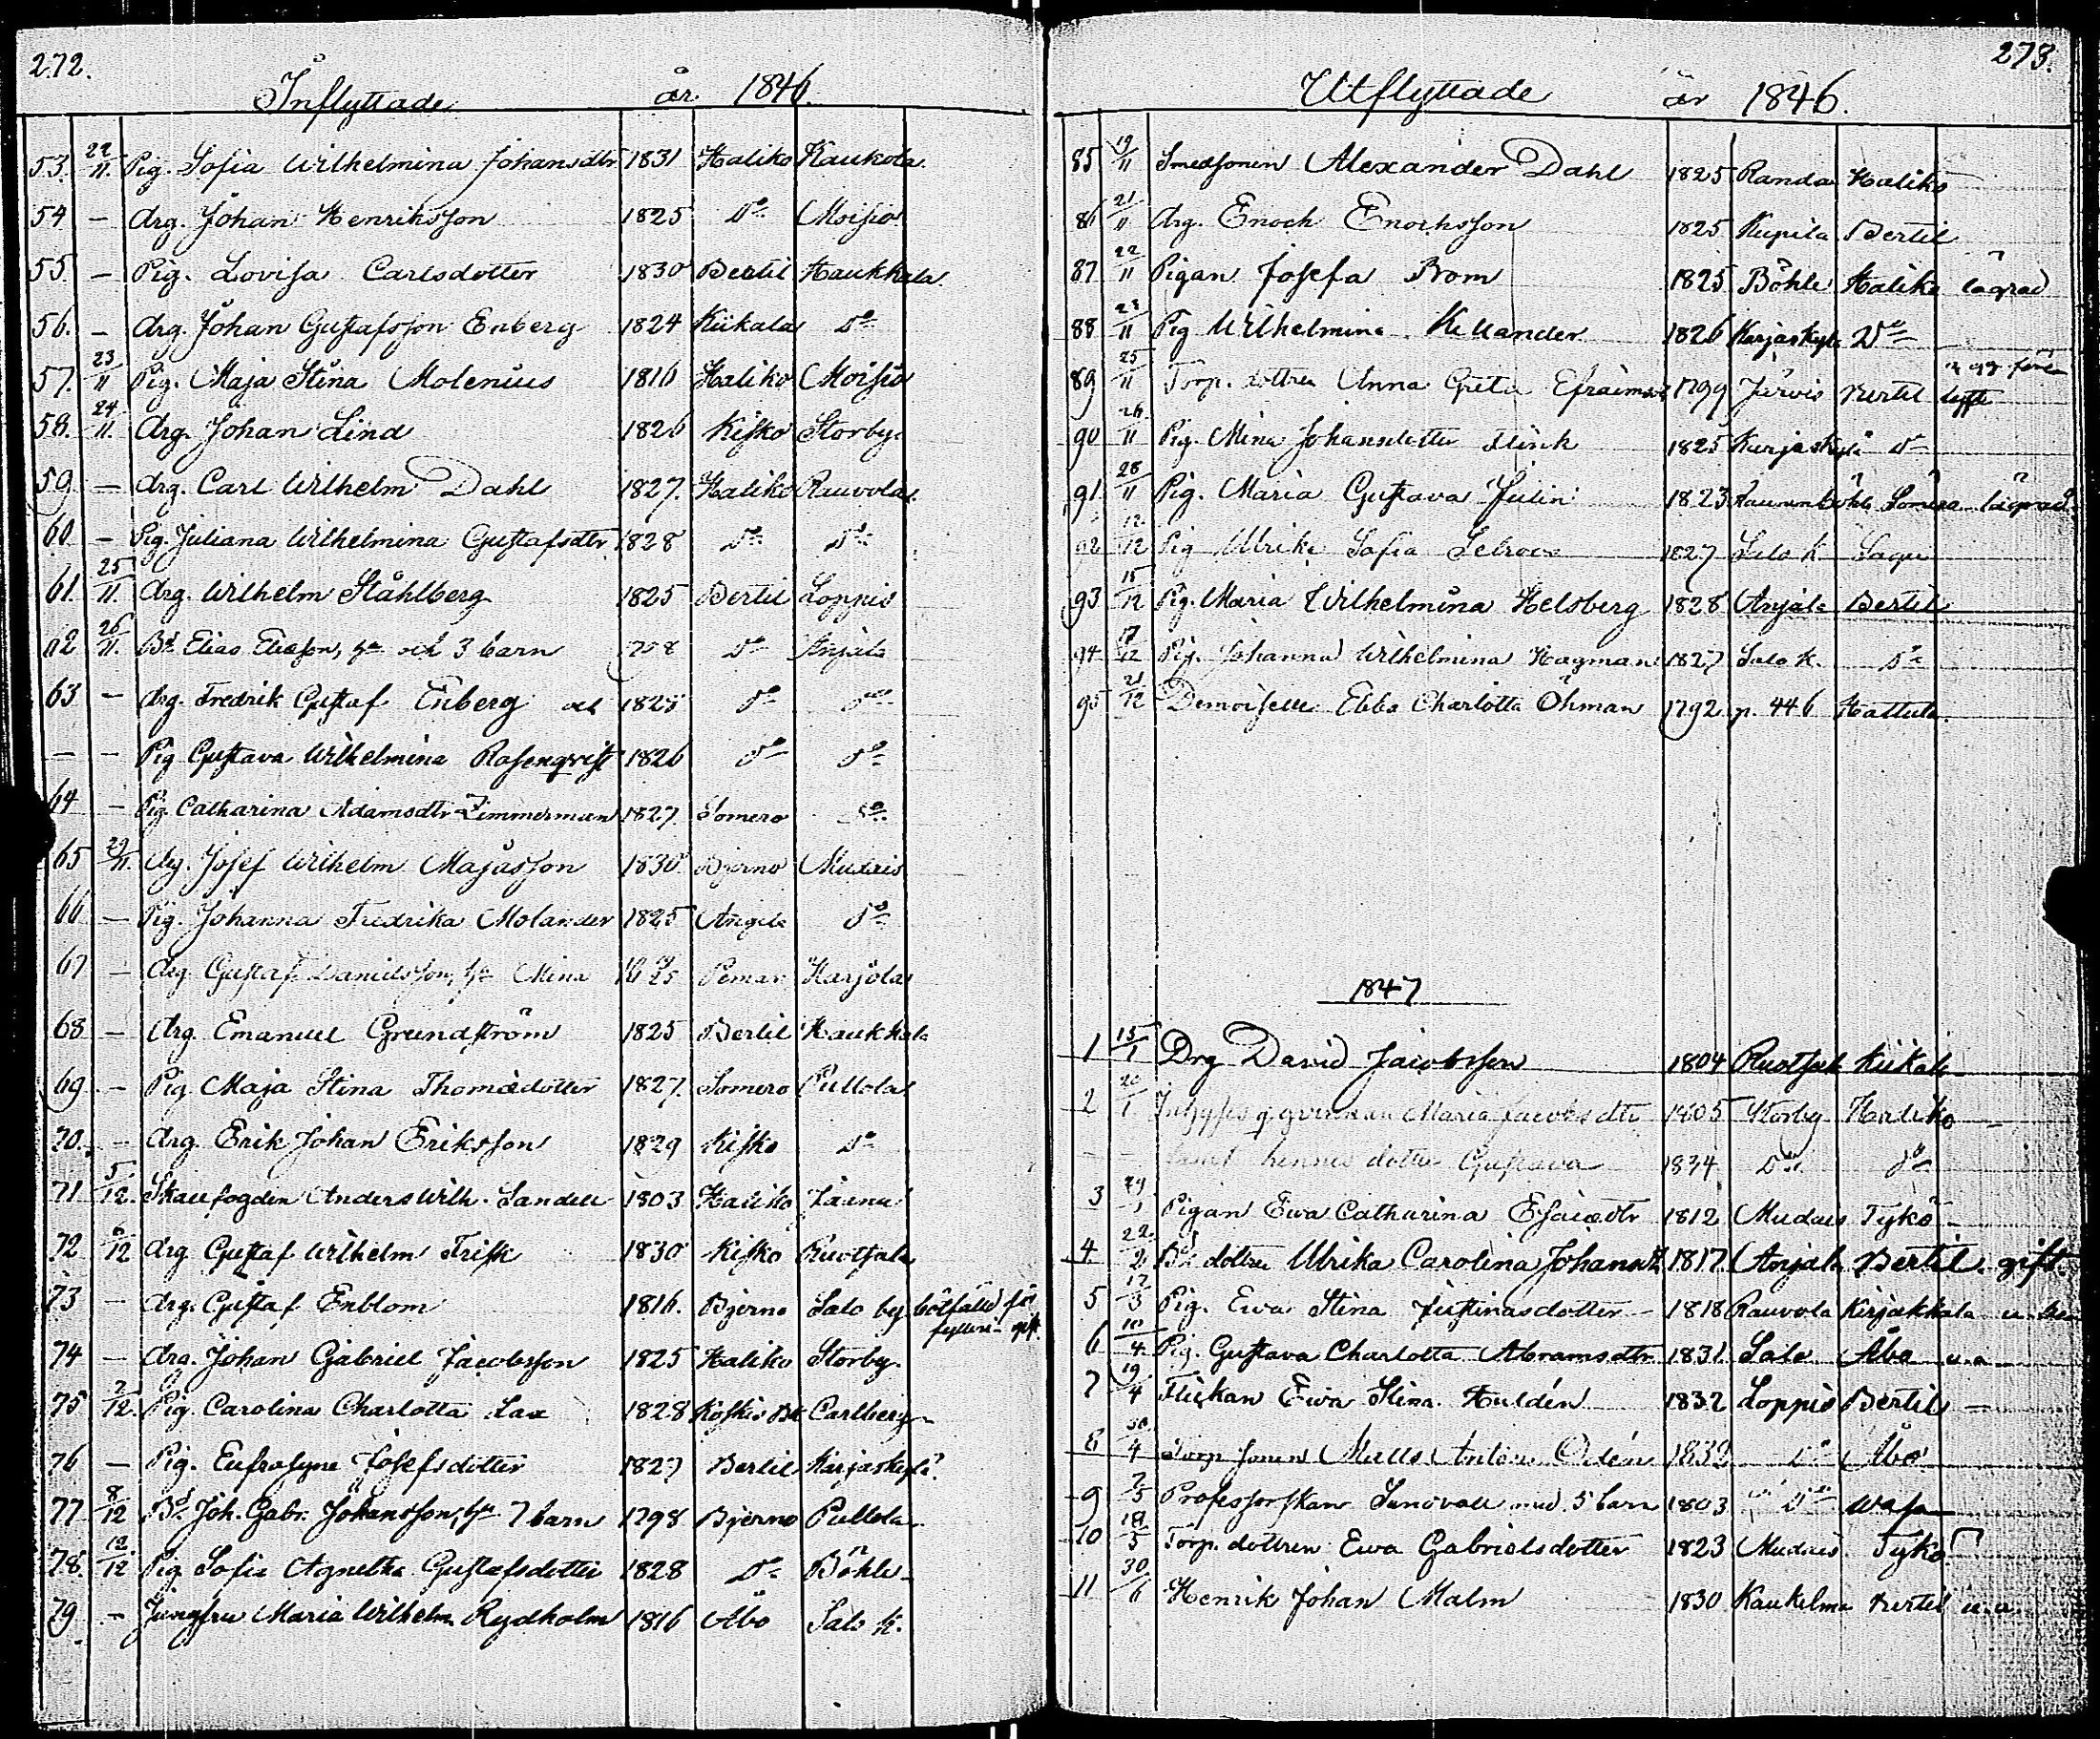 272.
Inflyttade år 1846.
53. 22/11. Pig. Sofia Wilhelmina Johansdtr 1831 Haliko Kaukola.
54 — Drg. Johan Henriksson 1825 Do Moisio
55. — Pig. Lovisa Carlsdotter 1830 Bertil Kaukkala
56. — Drg. Johan Gustafsson Enberg 1824 Kiikala Do
57. 23/11 Pig. Maja Stina Molenius 1816 Haliko Moisio
58. 24/11. Drg. Johan Lind 1826 Kisko Storby.
59 — Drg. Carl Wilhelm Dahl 1827. Haliko Rauvola.
60. — Pig. Juliana Wilhelmina Gustafsdtr 1828 Do Do
61. 25/11. Drg. Wilhelm Ståhlberg 1825 Bertil Loppis
62 26/11. Bd. Elias Eliasson, h. och 3 barn Do Anjala
63 — Drg. Fredrik Gustaf Enberg och 1825 Do Do
— — Pig Gustava Wilhelmina Rosenqvist 1826 Do Do
64 — Pig. Catharina Adamsdtr Zimmerman 1827. Somero Do
65 29/11. Drg. Josef Wilhelm Majasson 1830 Bjerno Mudais
66 — Pig. Johanna Fredrika Molander 1825 Do
67 — Drg. Gustaf Danielsson, h. Mina Pemar Karjola
68 — Drg. Emanuel Grundström 1825 Bertil Kaukkala
69. — Pig Maja Stina Thomædotter 1827. Somero Pullola
70. — Drg. Erik Johan Eriksson 1829 Kisko Do
71 5/12. Anders Wilh. Sandell 1803 Haliko
72 6/12 Drg. Gustaf Wilhelm Frisk 1830 Kisko Ruotsala
73 — Drg. Gustaf Enblom 1816. Bjerno Salo by bötfälld för
fylleri gift.
74 — Drg. Johan Gabriel Jacobsson 1825 Haliko Storby.
75 7/12. Pig. Carolina Charlotta Lax 1828 Koskis Bk Carlberg
76 — Pig. Eufrosyne Josefsdotter 1827 Bertil Karjaskylä
77 8/12 Bd. Joh. Gabr. Johansson, h. 7 barn 1798 Bjerno Pullola
78 12/12 Pig Sofia Agnetha Gustafsdotter 1828 Do Böhle
79. — Jungfru Maria Wilhelm. Rydholm 1816 Åbo Salo k.
273.
Utflyttade år 1846.
85 19/11 Smedsonen Alexander Dahl 1825 Randa Haliko
86 21/11 Drg. Enoch Enochsson 1825 Kupila Bertil
87 22/11 Pigan Josefa Brom 1825 Böhle Haliko lägrad
88 23/11 Pig Wilhelmina Kellander 1826 Karjaskylä Do
89 25/11 Torp. dottren Anna Greta Efraimsd 1799 Järvis Bertil
90 26/11 Pig. Mina Johannsdotter Flink 1825 Karjaskylä Do
91. 28/11 Pig. Maria Gustava Julin 1823 lägrad.
92 12/12 Pig Ulrika Sofia 1827 Salo k Sagu
93 15/12 Pig. Maria Wilhelmina Helsberg 1828 Anjala Bertil
94 17/12 Pig. Johanna Wilhelmina Hagman 1827 Salo k. Do
95 21/12 Demoiselle Ebba Charlotta Öhman 1792 p. 446 Hattula.
1847
1 15/1 Drg David Jacobsson 1804 Ruotsala Kiikala
2 20/1 Maria Jacobsdtr 1805 Storby Haliko
samt hennes dotter Gustava 1834 Do Do
3 29/1 Pigan Ewa Catharina Esaiædtr 1812 Mudais Tykö —
4. 22/2 Bd. dottren Ulrika Carolina Johansd. 1817. Anjala Bertil. gift.
5 17/3 Pig. Ewa Stina Justinasdotter — 1818 Rauvola Kirjakkala
6 10/4 Pig. Gustava Charlotta Abramsdtr 1831 Salo Åbo u.a
7 19/4 Flickan Ewa Stina Huldén 1832 Loppis Bertil —
8 30/4 Torp. sonen Matts Anton Odén 1832 Do Åbo
9 7/5 Professorskan Sundvall med 5 barn 1803 Do Wasa
10 18/5 Torp. dottren Ewa Gabrielsdotter 1823 Mudais Tykö
11 30/6 Henrik Johan Malm 1830 Kaukelma Bertil u.a.